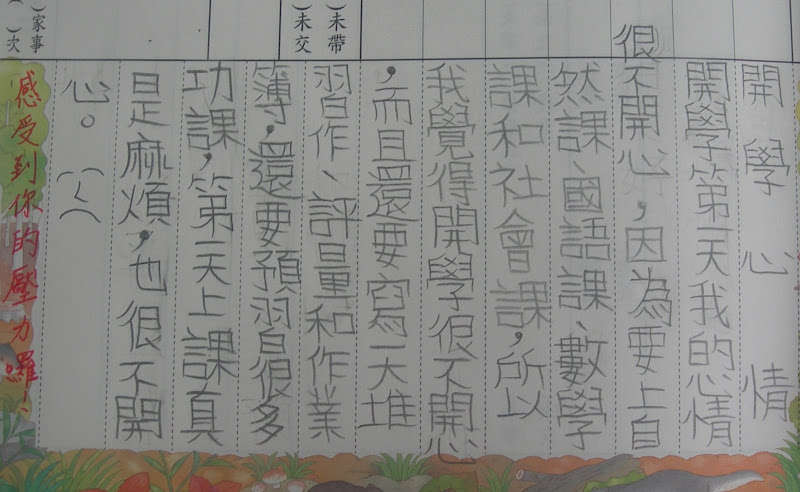 )未帶
)未交
)家事
)次
開學心情
開學第一天我的心情
很不開心,因為要上自
然課、國語課、數學
課和社會課,所以
我覺得開學很不開心
,而且還要寫一大堆
習作、評量和作業
簿,還要預習很多
功課,第一天上課真
是麻煩,也很不開
心。
感受到你的壓力囉!